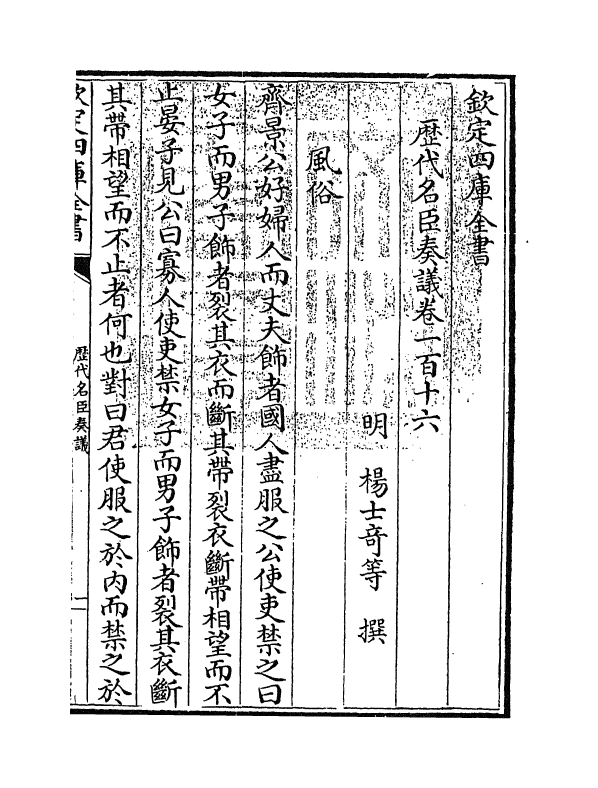 欽定四庫全書
歷代名臣奏議卷一百十六
明 楊士竒等 撰
風俗
齊景公好婦人而丈夫飾者國人盡服之公使吏禁之曰
女子而男子飾者裂其衣而斷其帶裂衣斷帶相望而不
止晏子見公曰寡人使吏禁女子而男子飾者裂其衣斷
其帶相望而不止者何也對曰君使服之於內而禁之於
欽定四庫全書
歷代名臣奏議
一